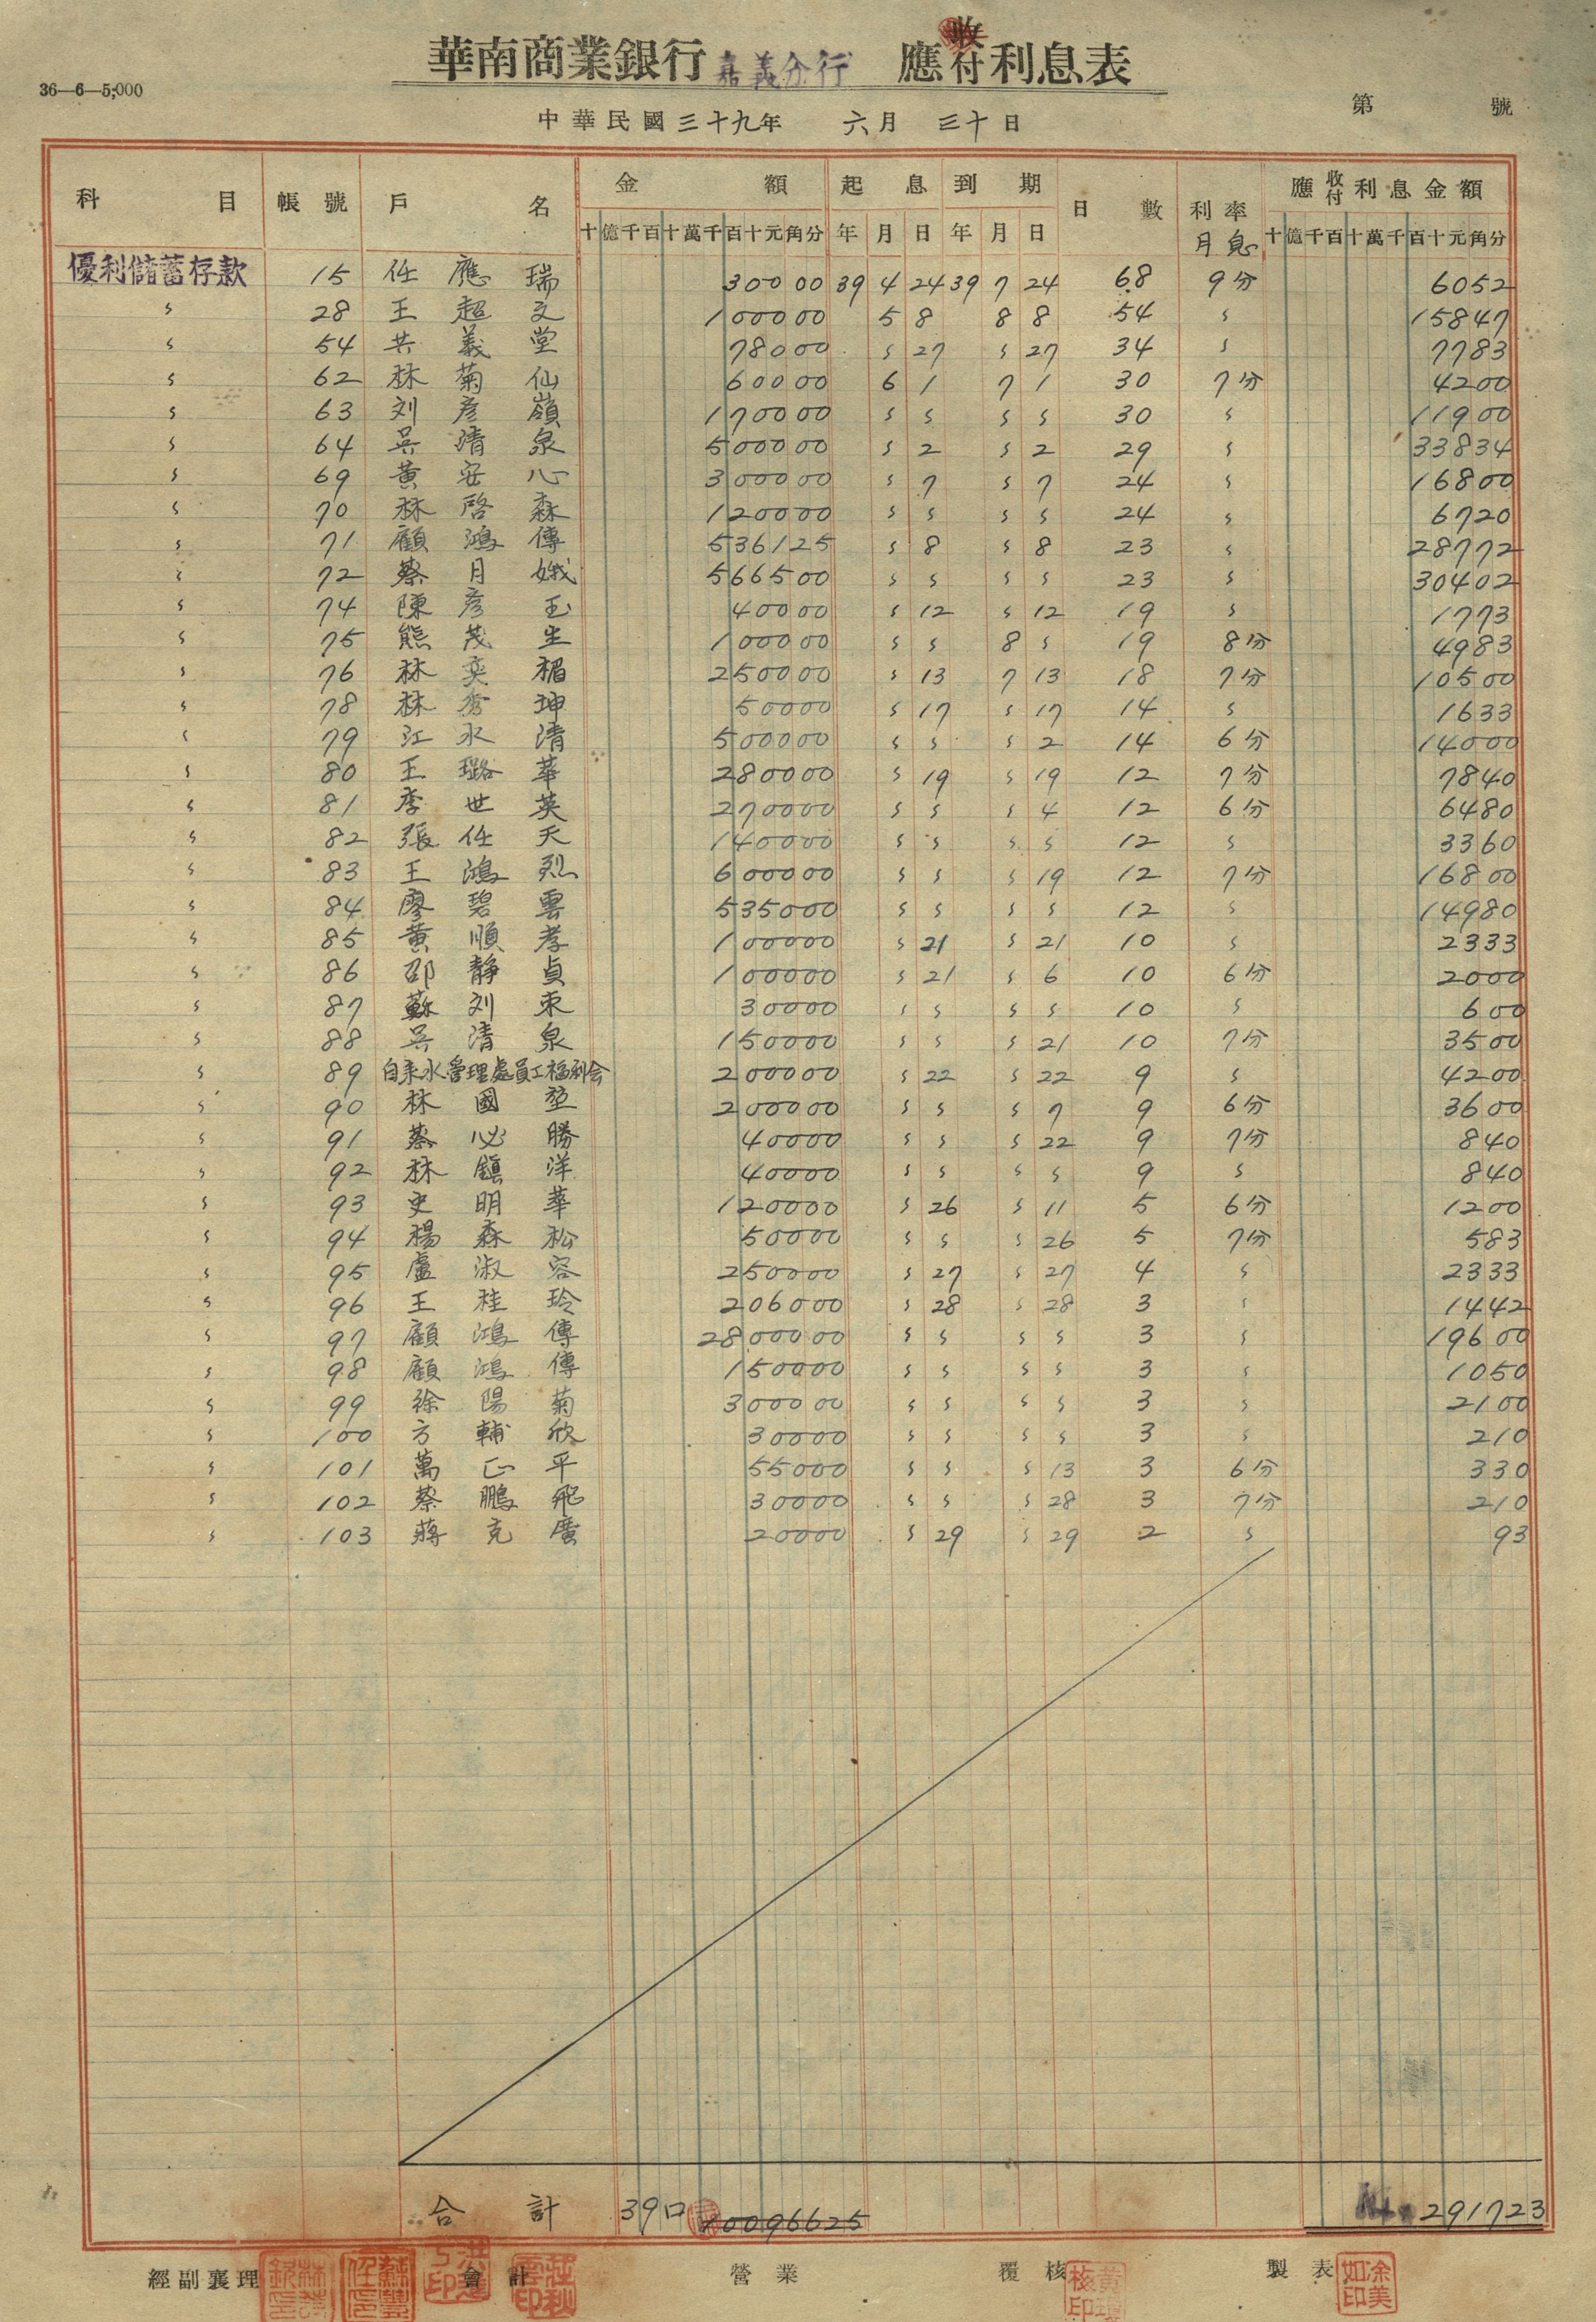 華南商業銀行 嘉義分行 應收付利息表
36—6—5,000
中華民國三十九年 六月 三十日
第 號
科目 帳號 戶名 金額 起息 到期 日數 利率 應收付利息金額
十億千百十萬千百十元角分 年月日 年月日 月息 十億千百十萬千百十元角分
優利儲蓄存款 15 任應瑞 300000 39 4 24 39 7 24 68 9分 6052
〃 28 王超文 100000 5 8 8 8 54 〃 15847
〃 54 共義堂 78000 〃 27 〃 27 34 〃 7783
〃 62 林菊仙 60000 6 1 7 1 30 7分 4200
〃 63 刘彦嶺 170000 〃 〃 〃 〃 30 〃 11900
〃 64 吳清泉 500000 〃 2 〃 2 29 〃 33834
〃 69 黃安心 300000 〃 7 〃 7 24 〃 16800
〃 70 林啓森 120000 〃 〃 〃 〃 24 〃 6720
〃 71 顧鴻傳 536125 〃 8 〃 8 23 〃 28772
〃 72 蔡月娥 566500 〃 〃 〃 〃 23 〃 30402
〃 74 陳彦玉 40000 〃 12 〃 12 19 〃 1773
〃 75 熊茂生 100000 〃 〃 8 〃 19 8分 4983
〃 76 林奕楣 250000 〃 13 7 13 18 7分 10500
〃 78 林秀坤 50000 〃 17 〃 17 14 〃 1633
〃 79 江永清 500000 〃 〃 〃 2 14 6分 14000
〃 80 王璐華 280000 〃 19 〃 19 12 7分 7840
〃 81 李世英 270000 〃 〃 〃 4 12 6分 6480
〃 82 張任天 140000 〃 〃 〃 〃 12 〃 3360
〃 83 王鴻烈 600000 〃 〃 〃 19 12 7分 16800
〃 84 廖碧雲 535000 〃 〃 〃 〃 12 〃 14980
〃 85 黃順孝 100000 〃 21 〃 21 10 〃 2333
〃 86 邵靜貞 100000 〃 21 〃 6 10 6分 2000
〃 87 蘇刘束 30000 〃 〃 〃 〃 10 〃 600
〃 88 吳清泉 150000 〃 〃 〃 21 10 7分 3500
〃 89 自来水管理處員工福利会 200000 〃 22 〃 22 9 〃 4200
〃 90 林國 200000 〃 〃 〃 7 9 6分 3600
〃 91 蔡必勝 40000 〃 〃 〃 22 9 7分 840
〃 92 林鎮洋 40000 〃 〃 〃 〃 9 〃 840
〃 93 史明華 120000 〃 26 〃 11 5 6分 1200
〃 94 楊森松 50000 〃 〃 〃 26 5 7分 583
〃 95 盧淑容 250000 〃 27 〃 27 4 〃 2333
〃 96 王桂玲 206000 〃 28 〃 28 3 〃 1442
〃 97 顧鴻傳 2800000 〃 〃 〃 〃 3 〃 19600
〃 98 顧鴻傳 150000 〃 〃 〃 〃 3 〃 1050
〃 99 徐陽菊 300000 〃 〃 〃 〃 3 〃 2100
〃 100 方輔欣 30000 〃 〃 〃 〃 3 〃 210
〃 101 萬正平 55000 〃 〃 〃 13 3 6分 330
〃 102 蔡鵬飛 30000 〃 〃 〃 28 3 7分 210
〃 103 蔣克廣 20000 〃 29 〃 29 2 〃 93
合計 39口 10096625 291723
經副襄理 會計 營業 覆核 製表 涂美如印